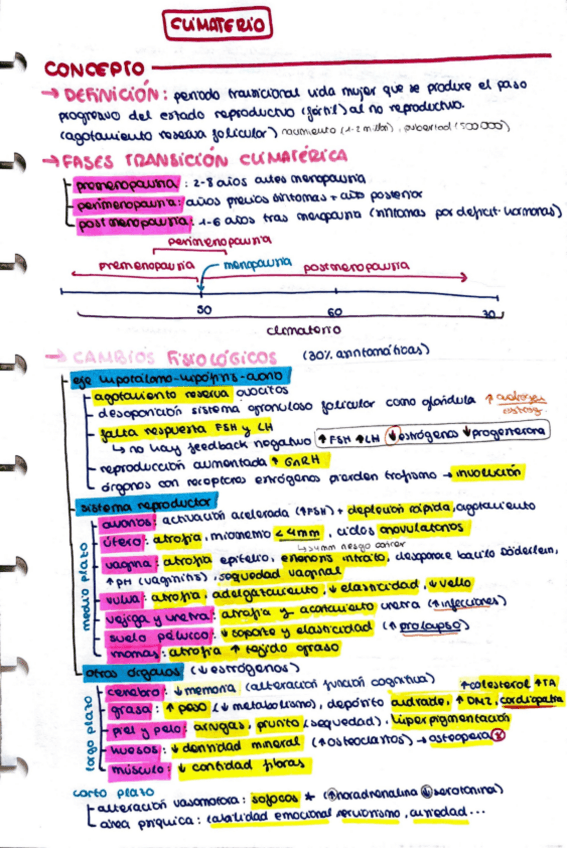 CLIMATERIO
CONCEPTO
→ DEFINICIÓN: periodo transicional vida mujer que se produce el paso
progresivo del estado reproductivo (fértil) al no reproductivo.
(agotamiento reserva folicular) nacimiento (1-2 millón). pubertad (500 000)
→ FASES TRANSICIÓN CLIMATÉRICA
premenopausia: 2-8 años antes menopausia
perimenopausia: años previos síntomas + año posterior
postmenopausia: 1-6 años tras menopausia (síntomas por déficit hormonas)
perimenopausia
premenopausia menopausia postmenopausia
50 60 70
climaterio
→ CAMBIOS FISIOLÓGICOS (30% asintomáticas)
eje hipotálamo-hipófisis-ovario
agotamiento reserva ovocitos
desaparición sistema granuloso folicular como glándula ↑
falta respuesta FSH y LH
↳ no hay feedback negativo ↑FSH ↑LH ↓estrógenos ↓progesterona
reproducción aumentada ↑ GnRH
órganos con receptores estrógenos pierden trofismo → involución
sistema reproductor
medio plazo
ovarios: activación acelerada (↑FSH) + depleción rápida, agotamiento
útero: atrofia, miometrio <4mm, ciclos anovulatorios
vagina: atrofia epitelio, introito, desaparece bacilo Döderlein,
↑ pH (vaginitis), sequedad vaginal
vulva: atrofia, adelgazamiento, ↓ elasticidad, ↓ vello
vejiga y uretra: atrofia y acortamiento uretra (↑infecciones)
suelo pélvico: ↓ soporte y elasticidad (↑prolapso)
mamas: atrofia ↑ tejido graso
otros órganos (↓ estrógenos)
largo plazo
cerebro: ↓ memoria (alteración función cognitiva) ↑colesterol ↑TA
grasa: ↑ peso (↓ metabolismo), depósito androide, ↑ DM2, cardiopatía
piel y pelo: arrugas, prurito (sequedad), hiperpigmentación
huesos: ↓ densidad mineral (↑osteoclastos) →
músculo: ↓ cantidad fibras
corto plazo
alteración vasomotora: sofocos * (↑noradrenalina ↓serotonina)
área psíquica: labilidad emocional nerviosismo, ansiedad...